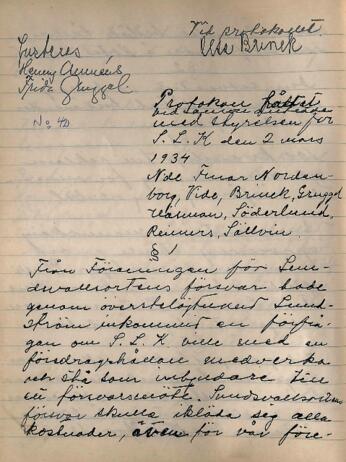 Vid protokollet
Elsa Brinck
Justeras
Henny
Frida Gruggel.
No 4
Protokoll hållet
vid
med styrelsen för
S. L. K den 2 mars
1934
Nde Fruar Nordenborg, Vide, Brinck, Gruggel
Söderlund,
Reimers, Sällvin.
§ 1
Från Föreningen för Sundsvallsortens försvar hade
genom överstelöjtnant Lundström inkommit en förfrågan om S. L. K ville med en
föredragshållare medverka
och stå som inbjudare till
ett försvarsmöte. Sundsvallsortens
försvar skulle ikläda seg alla
kostnader, även för vår före-